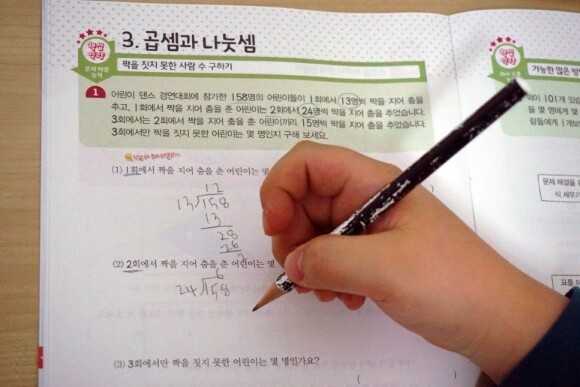 3. 곱셈과 나눗셈
짝을 짓지 못한 사람 수 구하기
문제 해결
능력
1
어린이 댄스 경연대회에 참가한 158명의 어린이들이 1회에서 13명씩 짝을 지어 춤을
추고, 1회에서 짝을 지어 춤을 춘 어린이는 2회에서 24명씩 짝을 지어 춤을 추었습니다.
3회에서는 2회에서 짝을 지어 춤을 춘 어린이끼리 15명씩 짝을 지어 춤을 추었습니다.
3회에서만 짝을 짓지 못한 어린이는 몇 명인지 구해 보세요.
(1) 1회에서 짝을 지어 춤을 춘 어린이는 몇
12
13 158
13
28
26
2
(2) 2회에서 짝을 지어 춤을 춘 어린이는 몇
6
24 158
(3) 3회에서만 짝을 짓지 못한 어린이는 몇 명인가요?
( )
가능한 많은 방
101개 있
을 몇 명에게 몇
람들에게 1개
문제 해결을
식 세우기
표를 이